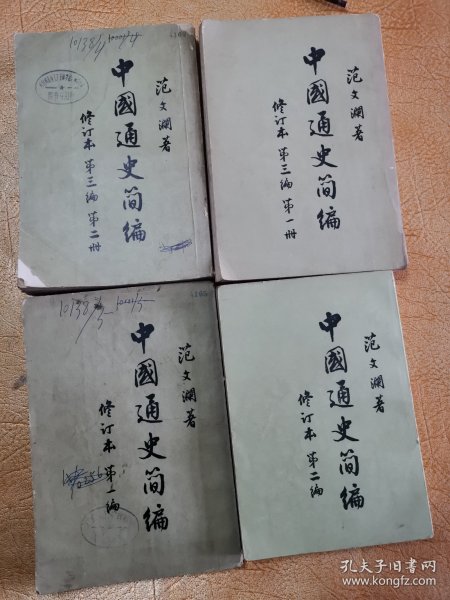 10138
4300
范文澜著
中國通史简编
修订本 第三编 第二册
范文澜著
中國通史简编
修订本 第三编 第一册
10138
范文澜著
中國通史简编
修订本 第一编
范文澜著
中國通史简编
修订本 第二编
孔夫子旧书网
www.kongfz.com